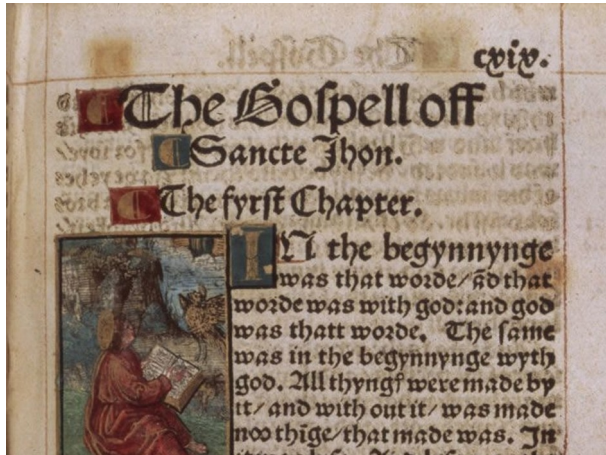 cxix.
The Gospell off
Sancte Jhon.
The fyrst Chapter.
IN the begynnynge
was that worde/ ād that
worde was with god: and god
was thatt worde. The same
was in the begynnynge wyth
god. All thyngꝭ were made by
it/ and with out it/ was made
noo thīge/ that made was. In